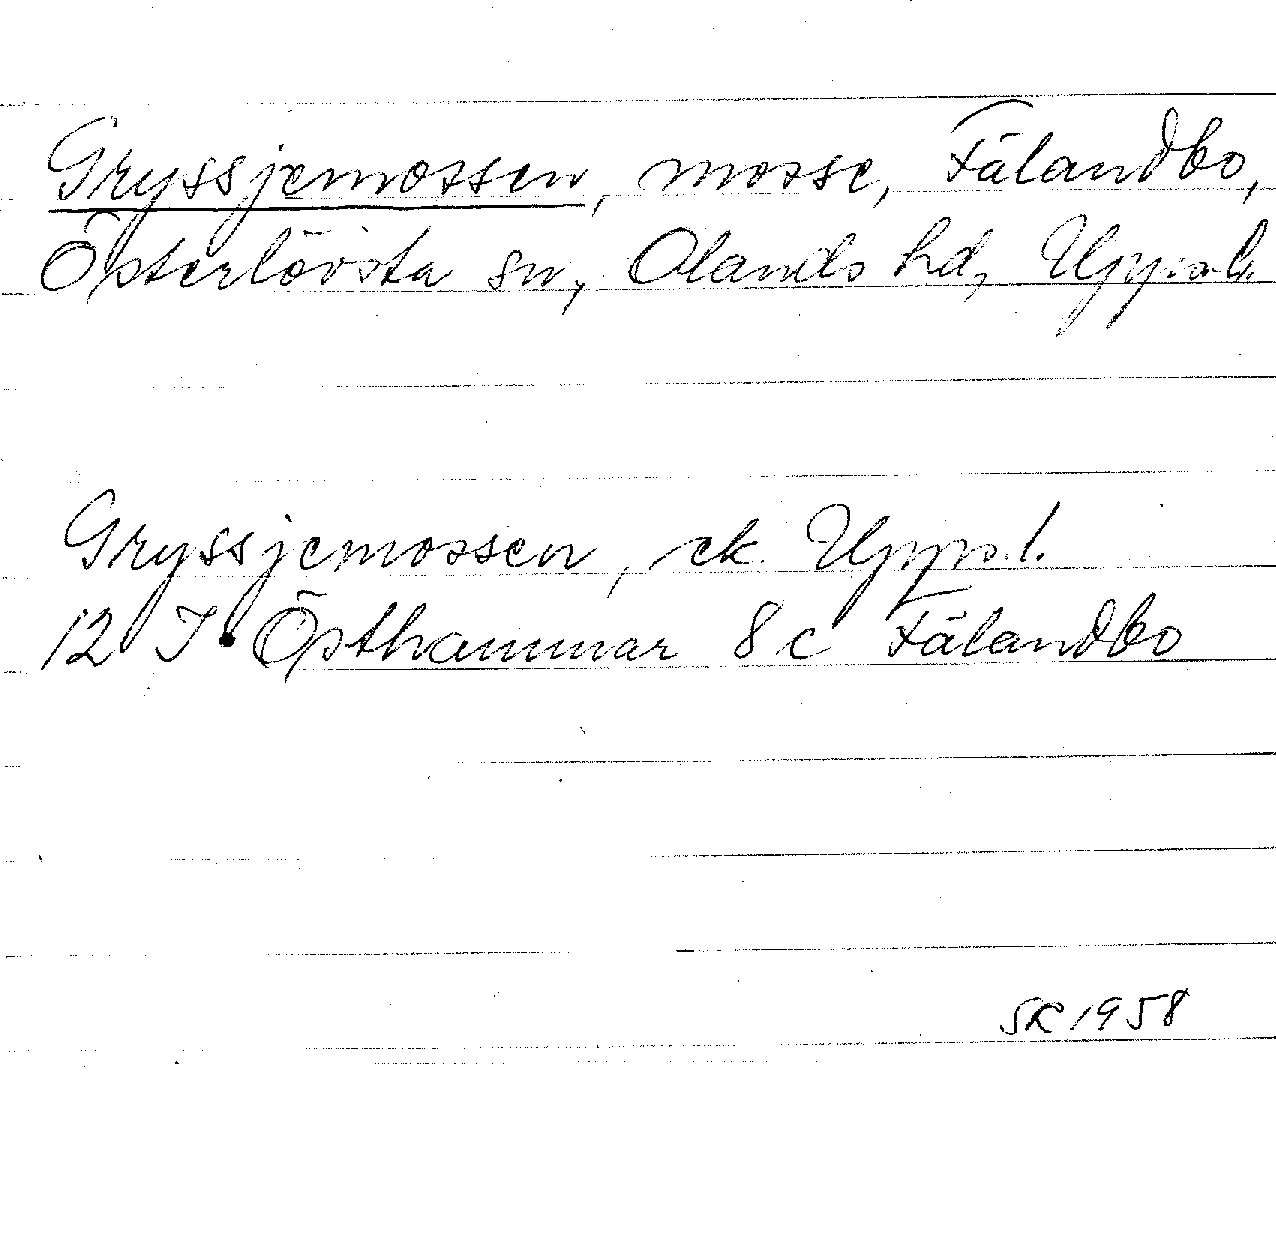 Gryssjemossen, mosse, Fälandbo,
Österlövsta sn, Olands hd, Uppsl.
Gryssjemossen, ek. Uppsl.
12 I Östhammar 8 c Fälandbo
SR 1958